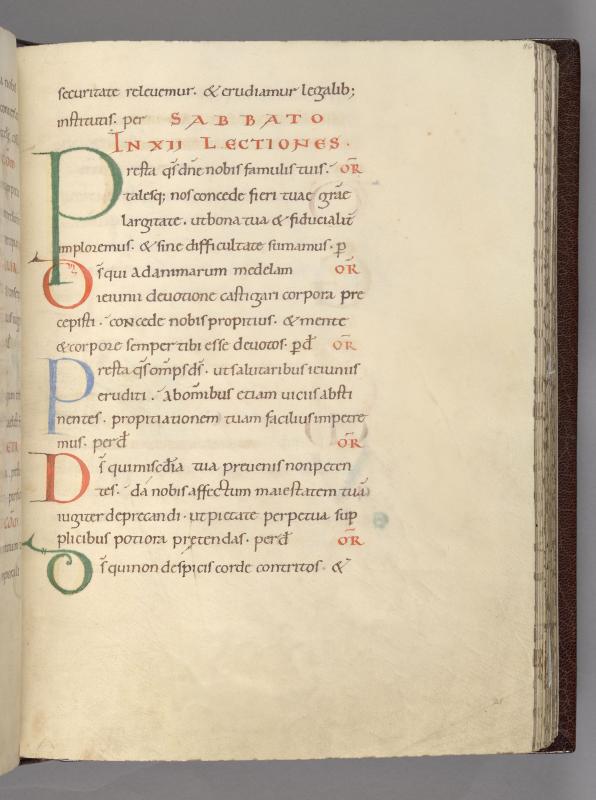 securitate releuemur. & erudiamur legalib;
institutis. per SABBATO
IN XII LECTIONES.
Presta qs dne nobis famulis tuis. OR
talesq; nos concede fieri tuae grae
largitate. ut bona tua & fiducialit
imploremus. & sine difficultate sumamus. p
Ds qui ad animarum medelam OR
ieiunii deuotione castigari corpora pre
cepisti. concede nobis propitius. & mente
& corpore semper tibi esse deuotos. p d OR
Presta qs omps ds. ut salutaribus ieiuniis
eruditi. Ab omibus etiam uiciis absti
nentes. propitiationem tuam facilius impetre
mus. per d OR
Ds qui miscdia tua preuenis non peten
tes. da nobis affectum maiestatem tua
iugiter deprecandi. ut pietate perpetua sup
plicibus potiora pretendas. per d OR
Ds qui non despicis corde contritos. &